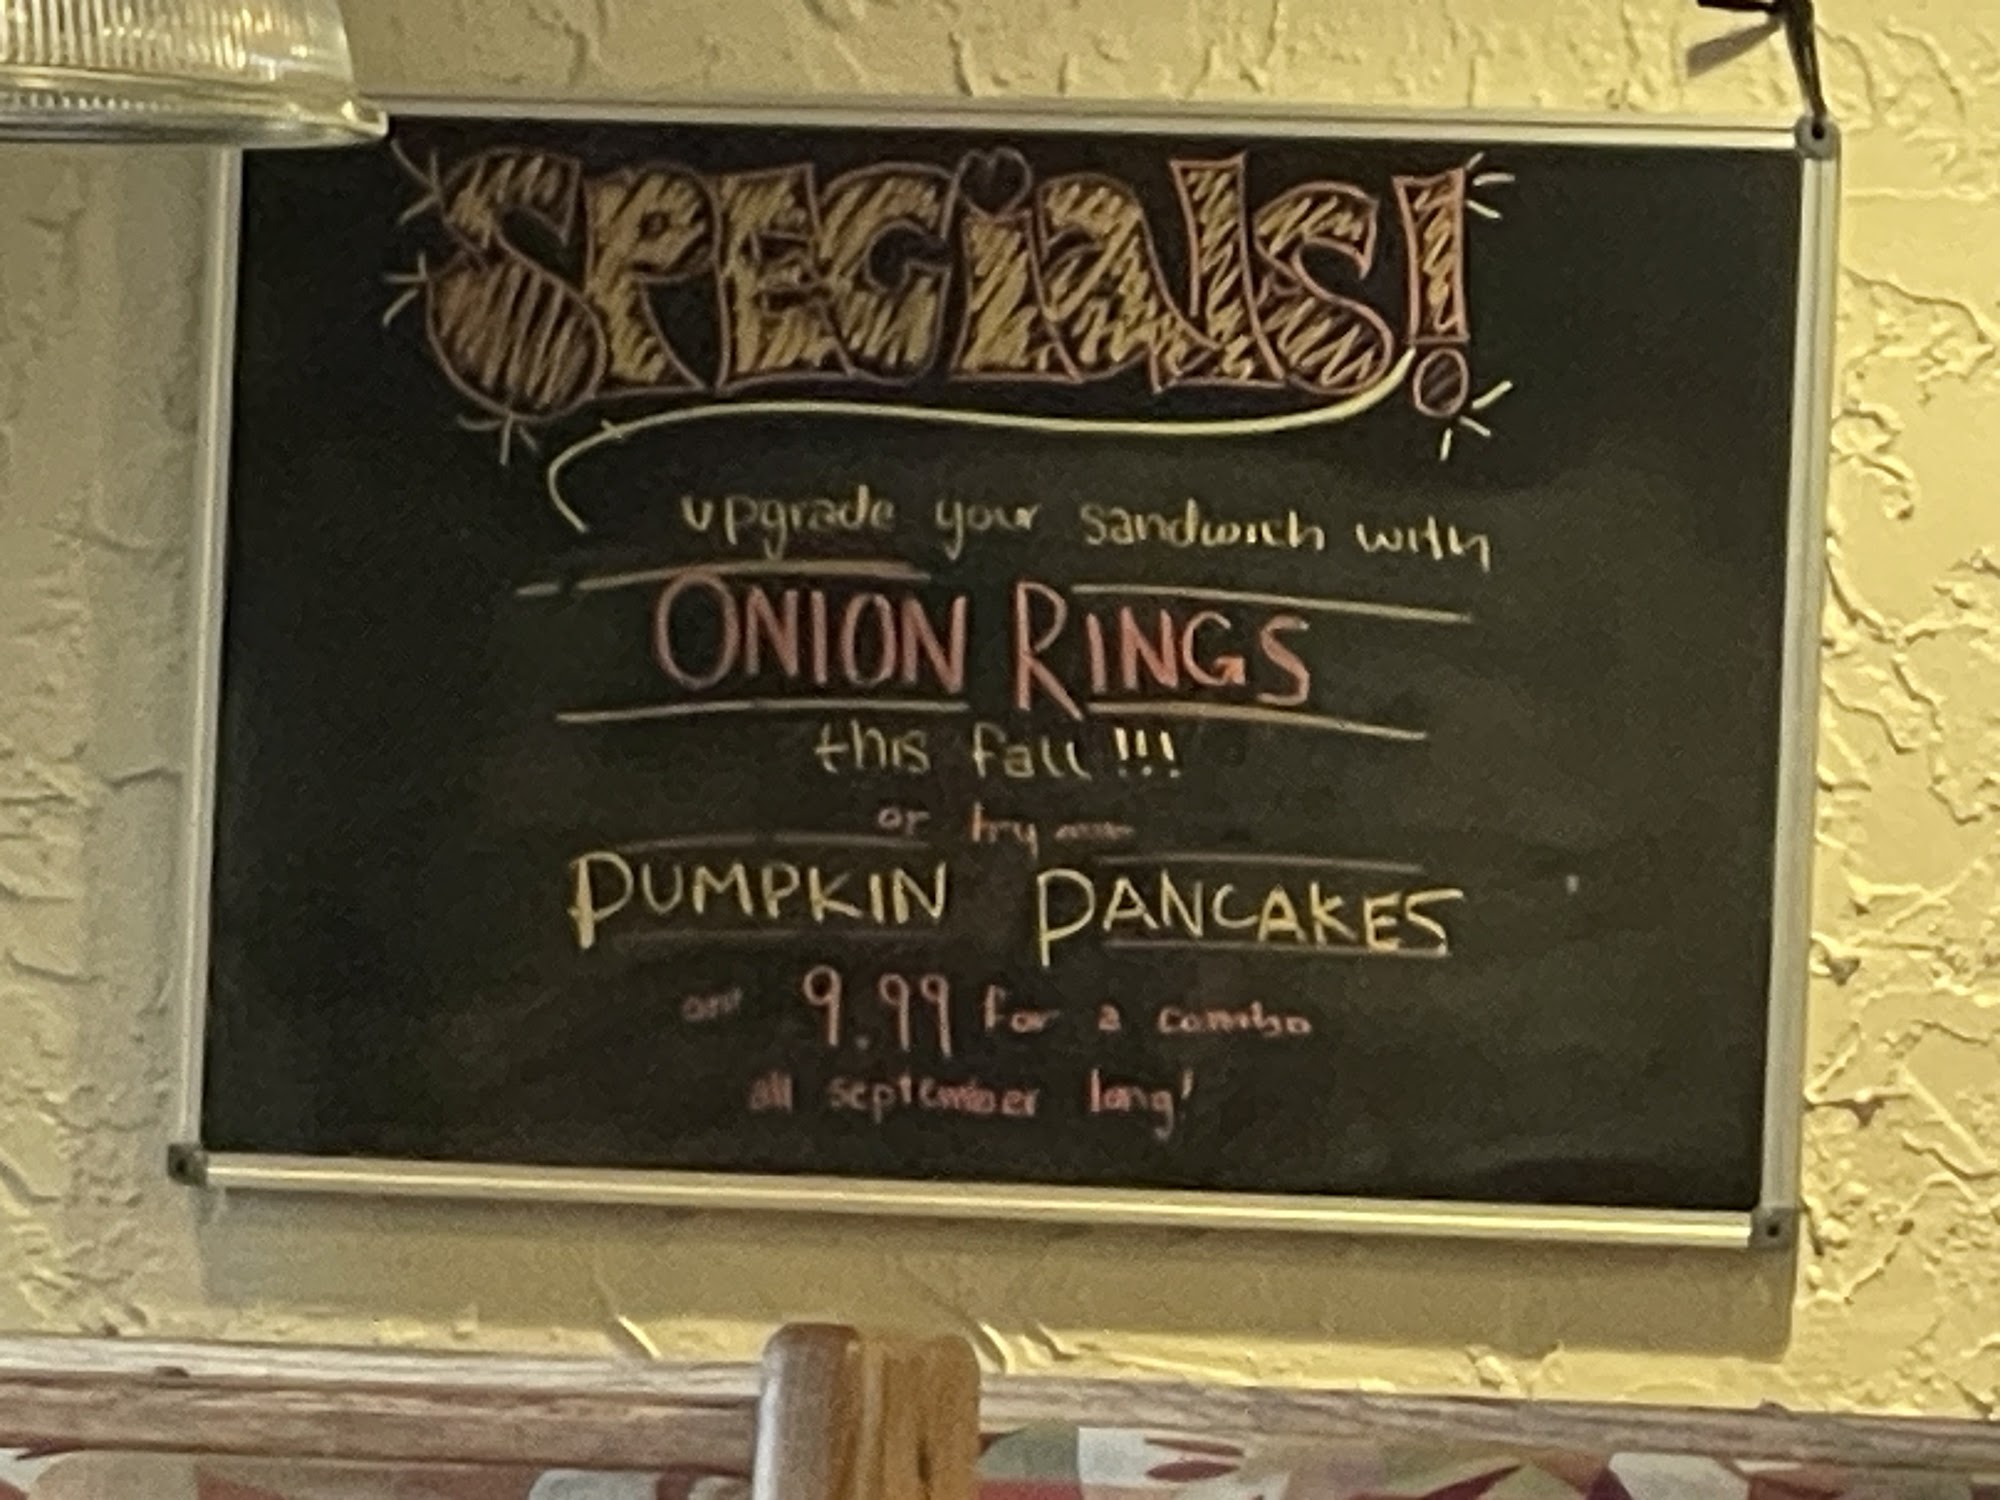 SPECiAlS!
upgrade your sandwich with
ONION RINGS
this fall!!!
or try
PUMPKIN PANCAKES
9.99 for a combo
all september long!